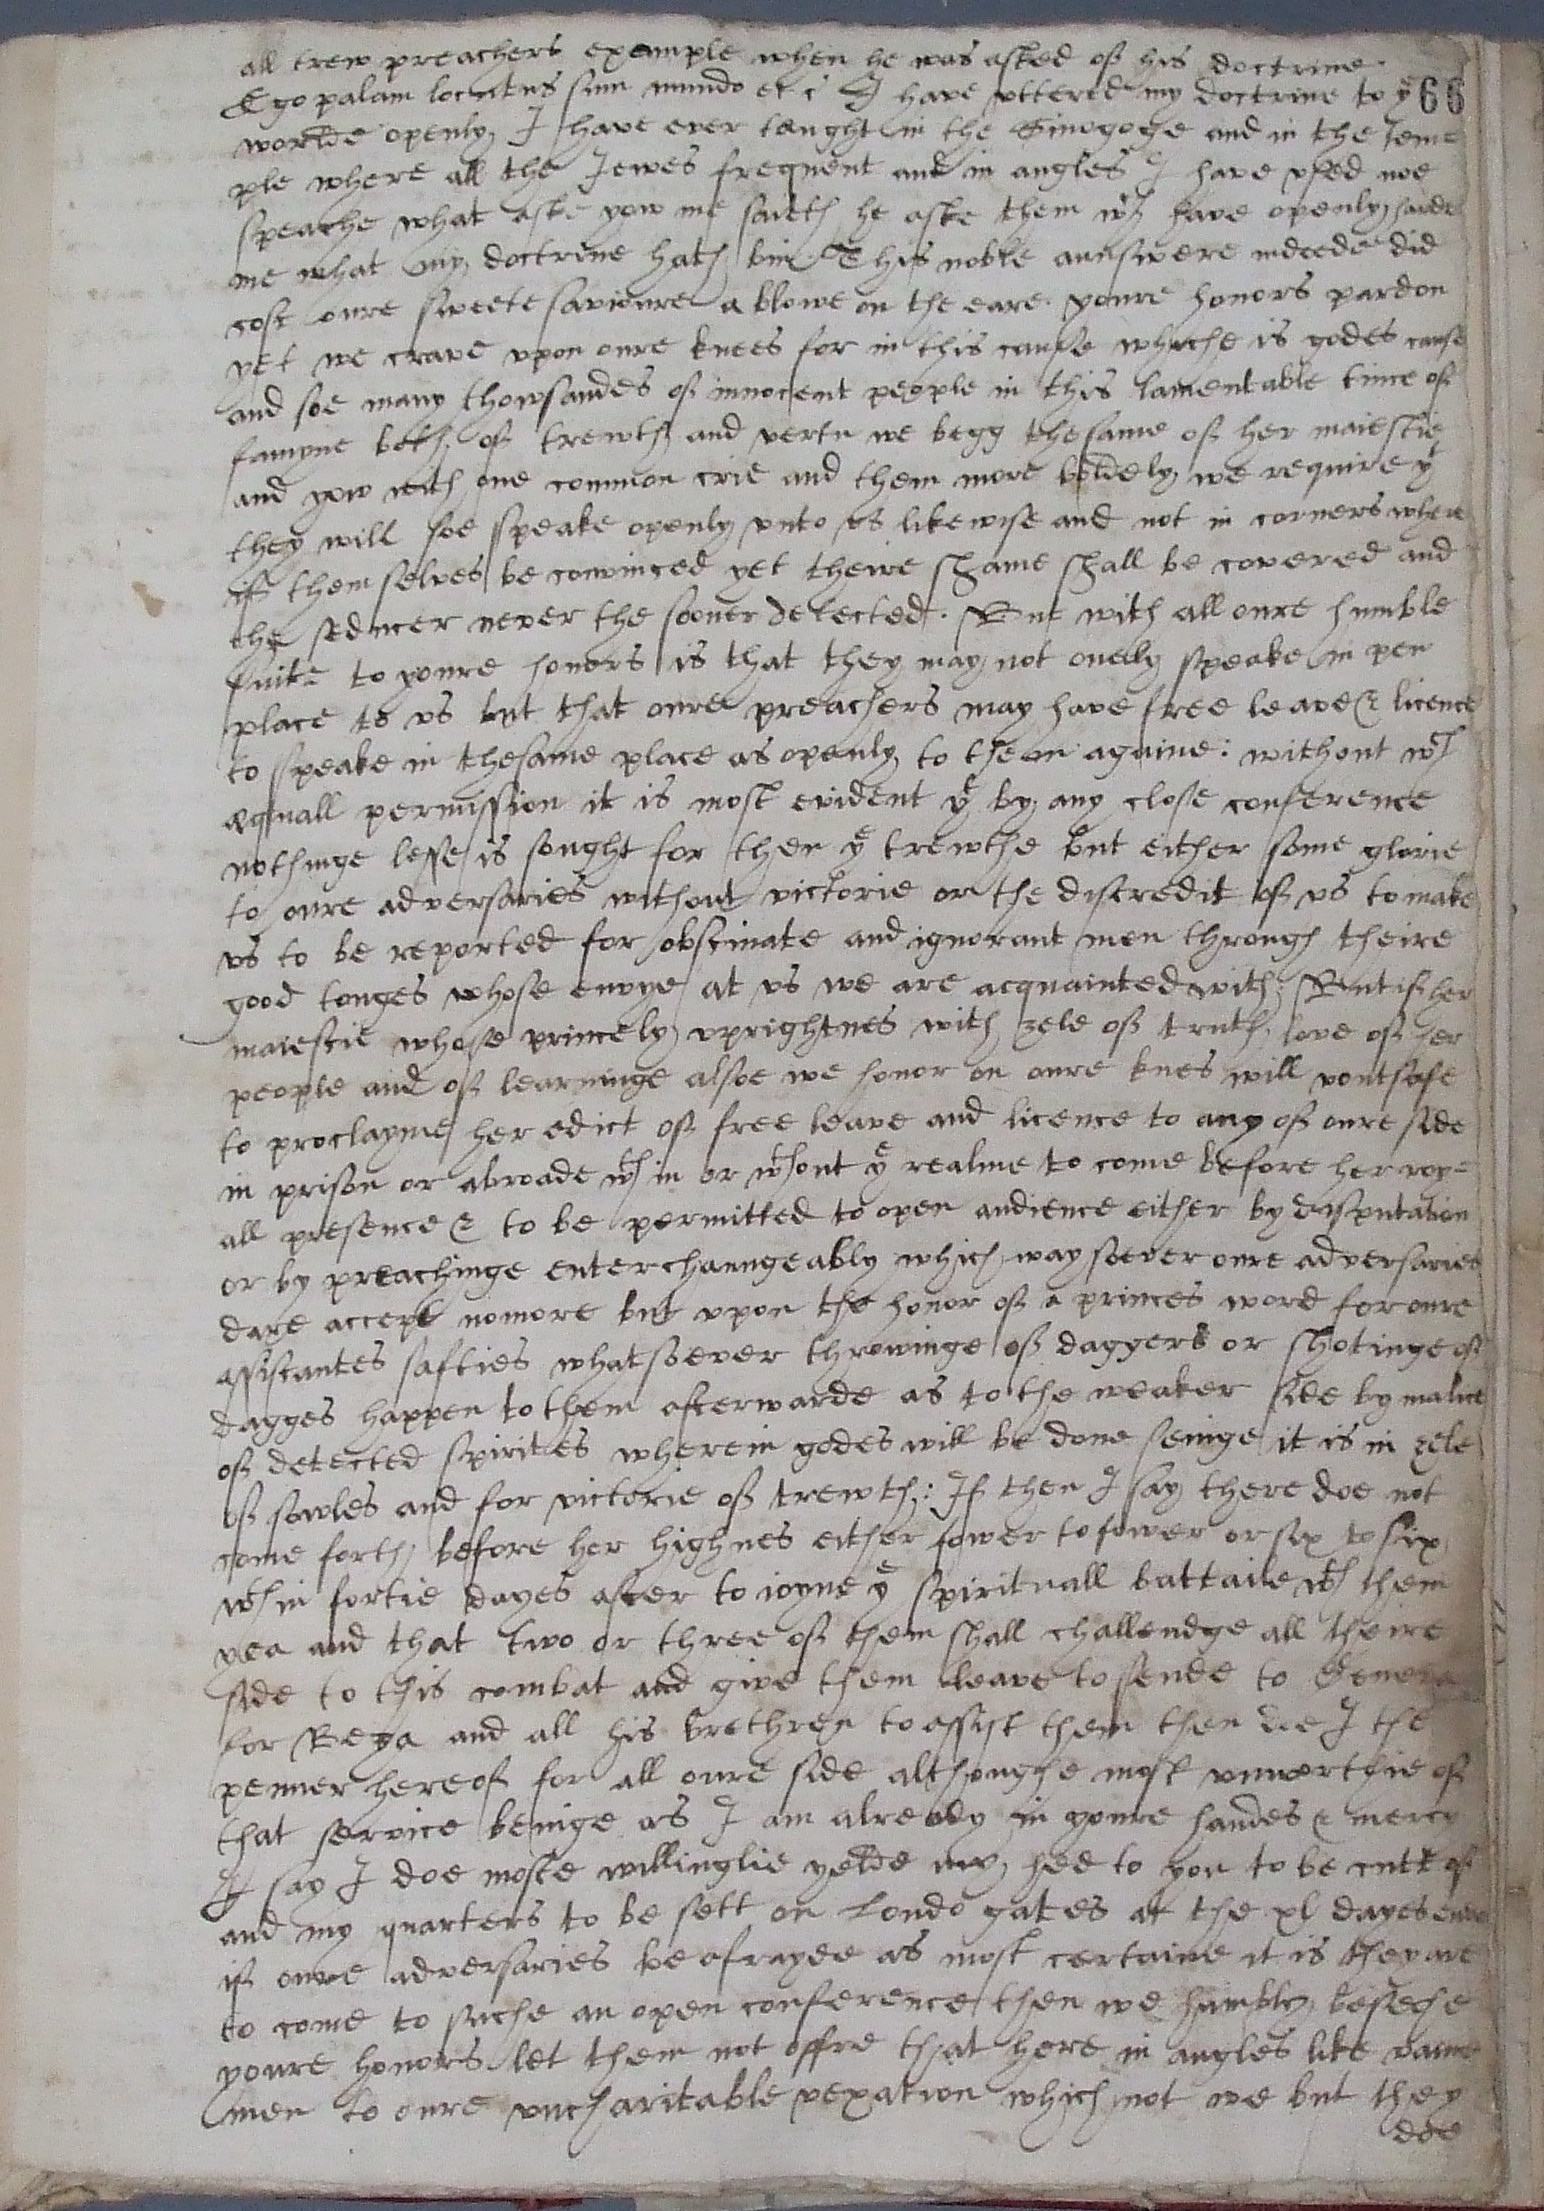 all trew preachers example when he was asked of his doctrine.
Ego palam locutus sum mundo et c̃ I have vttered my doctrine to yͤ 66
worlde openly, I have ever taught in the Sinogoge and in the Tem=
ple where all the Jewes frequent and in angles I have vsed noe
speache what aske yow me saieth he aske them wch have openly harde
me what my doctrine hath bin. This noble aunswere indeede did
cost oure sweete savioure a blowe on the eare. youre honors pardon
yet we crave vpon oure knees for in this cause whiche is godes cause
and soe many thowsandes of innocent people in this lamentable time of
famyne beth of trewth and vertu we begg the same of her maiestie
and yow with one common crie and them more boldely we require yͭ
they will soe speake openly vnto vs likewise and not in corners where
if them selves be convinced yet theire shame shall be covered and
the seducer never the sooner detected. But with all oure humble
suite to youre honors is that they may not onely speake in pen
place to vs but that oure preachers may have free leave & licence
to speake in the same place as openly to them againe: without wch
æquall permission it is most evident yͭ by any close conference
nothinge lesse is sought for then yͤ trewthe but either some glorie
to oure adversaries without victorie or the discredit of vs to make
vs to be reported for obstinate and ignorant men through theire
good tonges whose envye at vs we are acquainted with: But if her
maiestie whose princely vprightnes with zele of truth, love of her
people and of learninge alsoe we honor on oure knes will voutsafe
to proclayme her edict of free leave and licence to any of oure side
in prison or abroade wth in or wthout yͤ realme to come before her roy=
all presence & to be permitted to open audience either by disputation
or by preachinge enterchaungeably which way soever oure adversaries
dare accept nomore but vpon the honor of a princes word for oure
assistantes safties whatsoever throwinge of daggers or shotinge of
dagges happen to them afterwarde as to the weaker side by malice
of detected spirites wherein godes will be done seinge it is in zele
of sowles and for victorie of trewth: If then I say there doe not
come forth before her highnes either fower to fower or six to six
wth in fortie dayes after to ioyne yͤ spirituall battaile wth them
yea and that two or three of them shall challendge all theire
side to this combat and give them leave to sende to Geneva
for Beza and all his brethren to assist them then doe I the
penner hereof for all oure side althoughe most vnworthie of
that service beinge as I am already in youre handes & mercy
I say I doe moste willinglie yelde my hed to you to be cutt of
and my quarters to be sett on Londō gates at the xl dayes ende
if oure adversaries be afrayde as most certaine it is they are
to come to suche an open conference then we humbly beseche
youre honors let them not offre that here in angles like vaine
men to oure vncharitable vexation which not we but they
doe